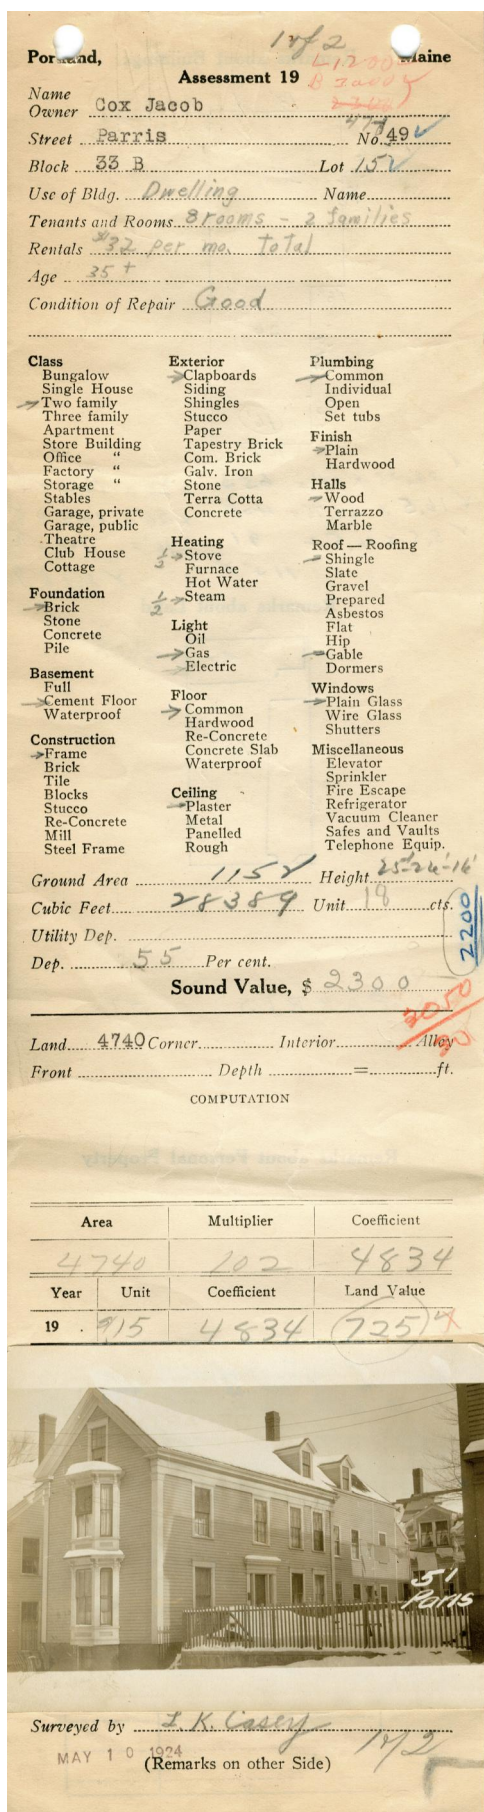 1 of 2
Portland, Maine
L 1200
Assessment 19
B
2300
Name
Owner Cox Jacob
47
Street Parris No. 49
Block 33 B Lot 15
Use of Bldg. Dwelling Name
Tenants and Rooms 8 rooms - 2 families
Rentals $32 per mo. Total
Age 35 +
Condition of Repair Good
Class
Bungalow
Single House
Two family
Three family
Apartment
Store Building
Office "
Factory "
Storage "
Stables
Garage, private
Garage, public
Theatre
Club House
Cottage
Foundation
Brick
Stone
Concrete
Pile
Basement
Full
Cement Floor
Waterproof
Construction
Frame
Brick
Tile
Blocks
Stucco
Re-Concrete
Mill
Steel Frame
Exterior
Clapboards
Siding
Shingles
Stucco
Paper
Tapestry Brick
Com. Brick
Galv. Iron
Stone
Terra Cotta
Concrete
Heating
Stove
Furnace
Hot Water
1/2 Steam
Light
Oil
Gas
Electric
Floor
Common
Hardwood
Re-Concrete
Concrete Slab
Waterproof
Ceiling
Plaster
Metal
Panelled
Rough
Plumbing
Common
Individual
Open
Set tubs
Finish
Plain
Hardwood
Halls
Wood
Terrazzo
Marble
Roof — Roofing
Shingle
Slate
Gravel
Prepared
Asbestos
Flat
Hip
Gable
Dormers
Windows
Plain Glass
Wire Glass
Shutters
Miscellaneous
Elevator
Sprinkler
Fire Escape
Refrigerator
Vacuum Cleaner
Safes and Vaults
Telephone Equip.
Ground Area 1152 Height 25'-24'-16'
Cubic Feet 28389 Unit 18 cts.
2200
Utility Dep.
Dep. 55 Per cent.
Sound Value, $ 2300
Land 4740 Corner Interior Alley
Front Depth = ft.
COMPUTATION
Area Multiplier Coefficient
4740 102 4834
Year Unit Coefficient Land Value
19 15 4834 725
51
Paris
Surveyed by L. K. Casey
MAY 10 1924
1 of 2
(Remarks on other Side)